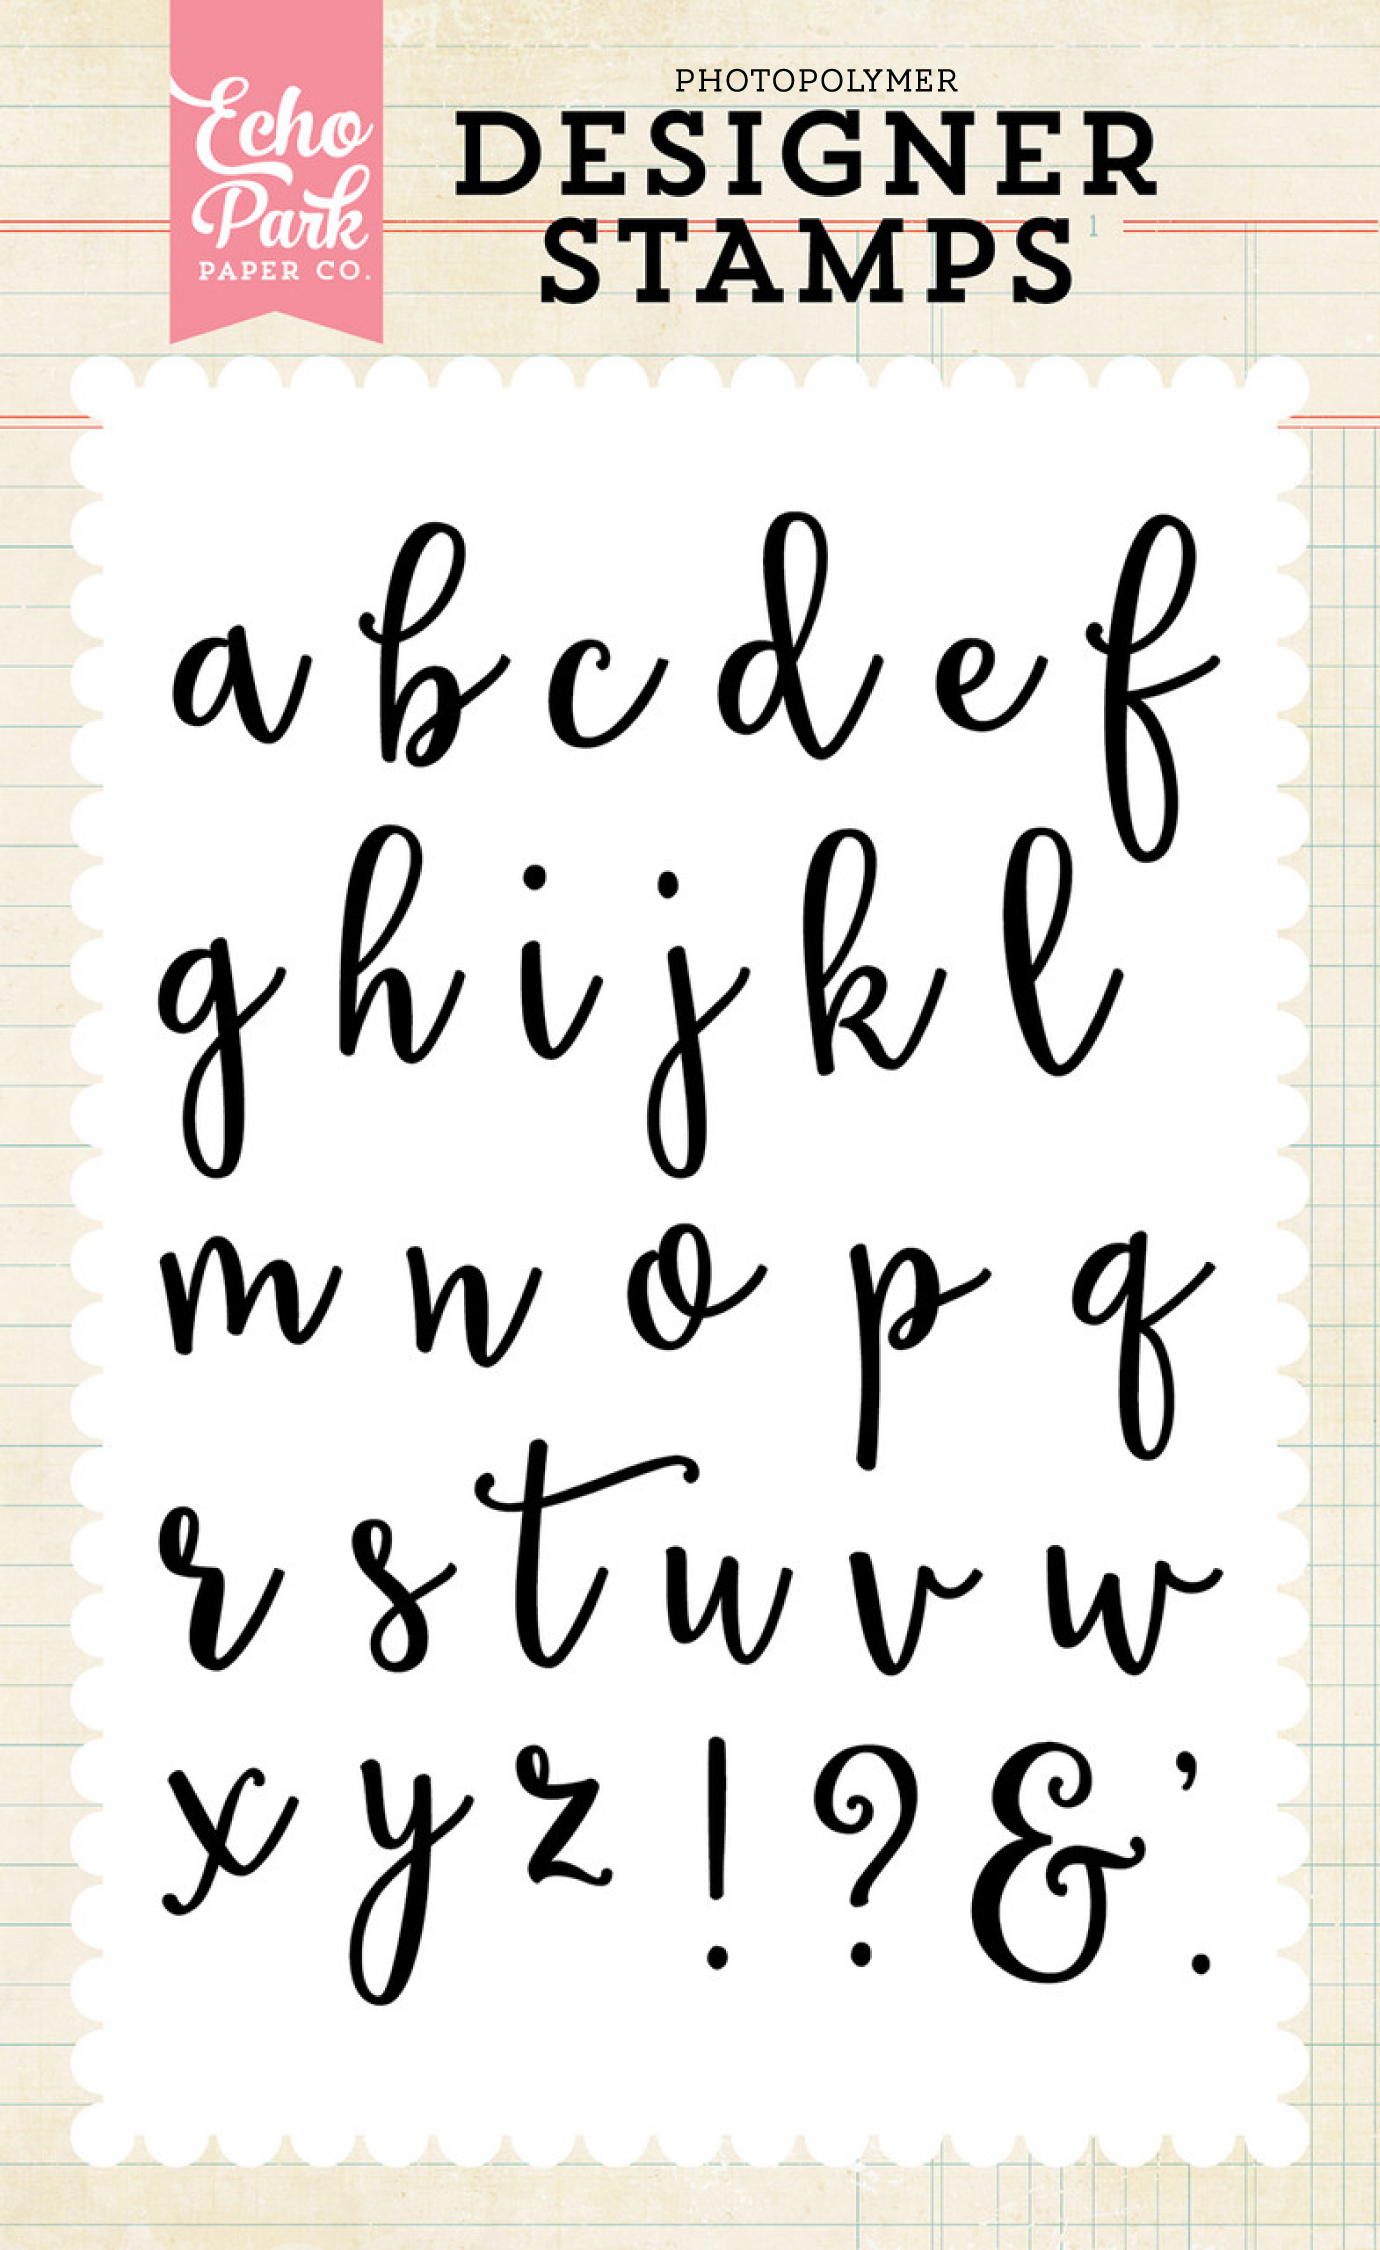 Echo
Park
PAPER CO.
PHOTOPOLYMER
DESIGNER
STAMPS
1
a b c d e f
g h i j k l
m n o p q
r s t u v w
x y z ! ? & ’ .